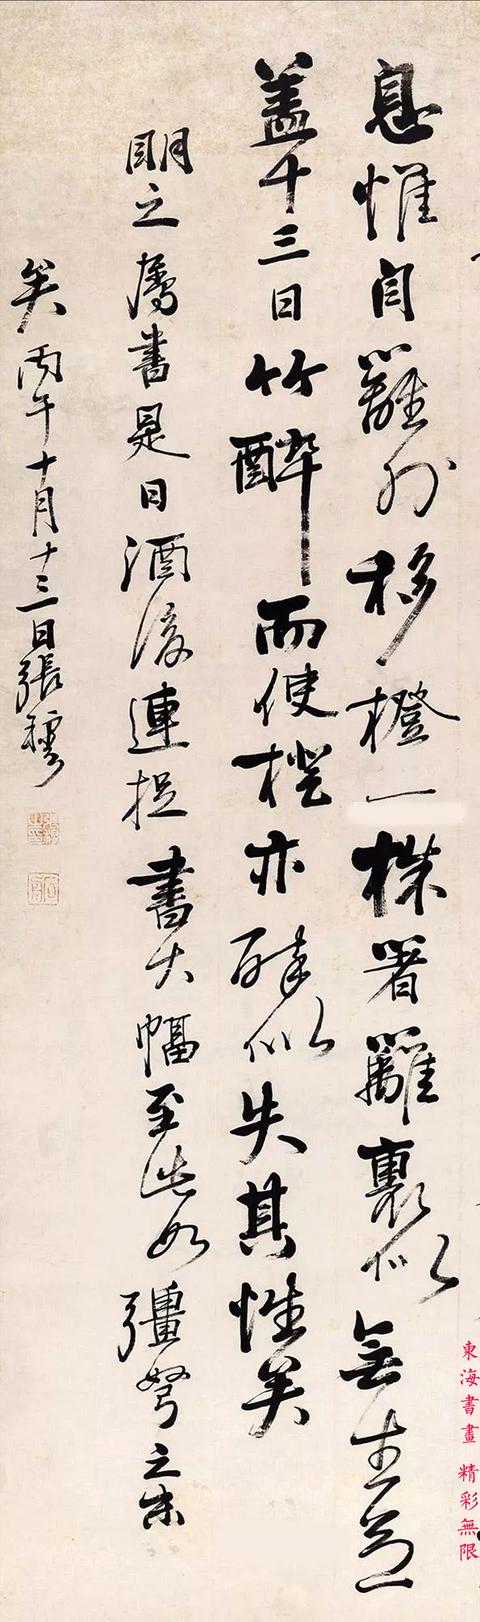 息惟自籬外移橙一株著籬裏似無生意
蓋十三日竹醉而使橙亦醉似失其性矣
明之屬書是日酒後連挺書大幅至此如彊弩之末
矣丙午十月十三日張穆
東海書畫 精彩無限